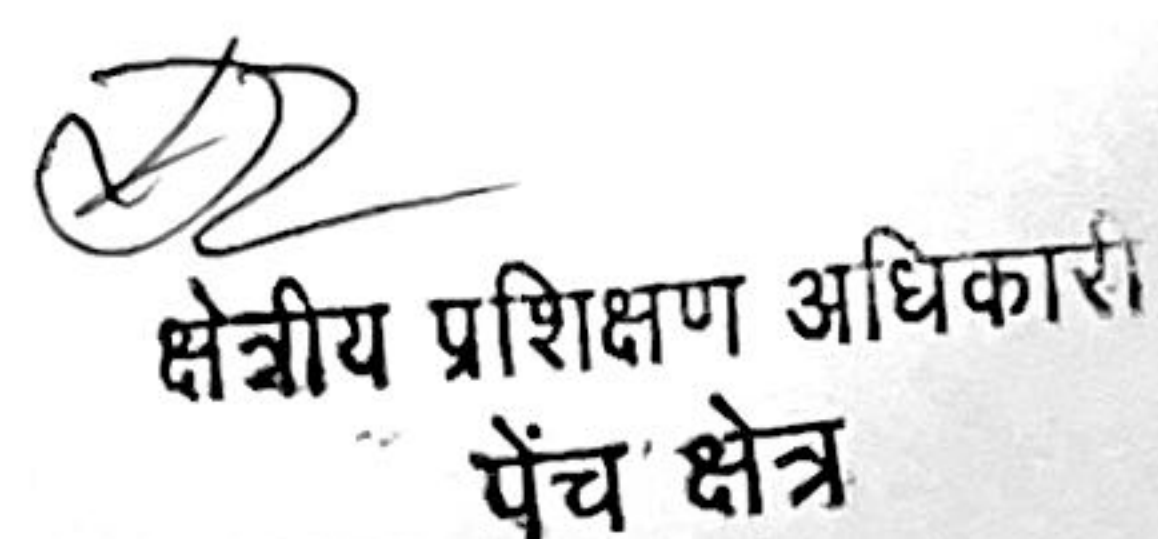 क्षेत्रीय प्रशिक्षण अधिकारी
पेंच क्षेत्र